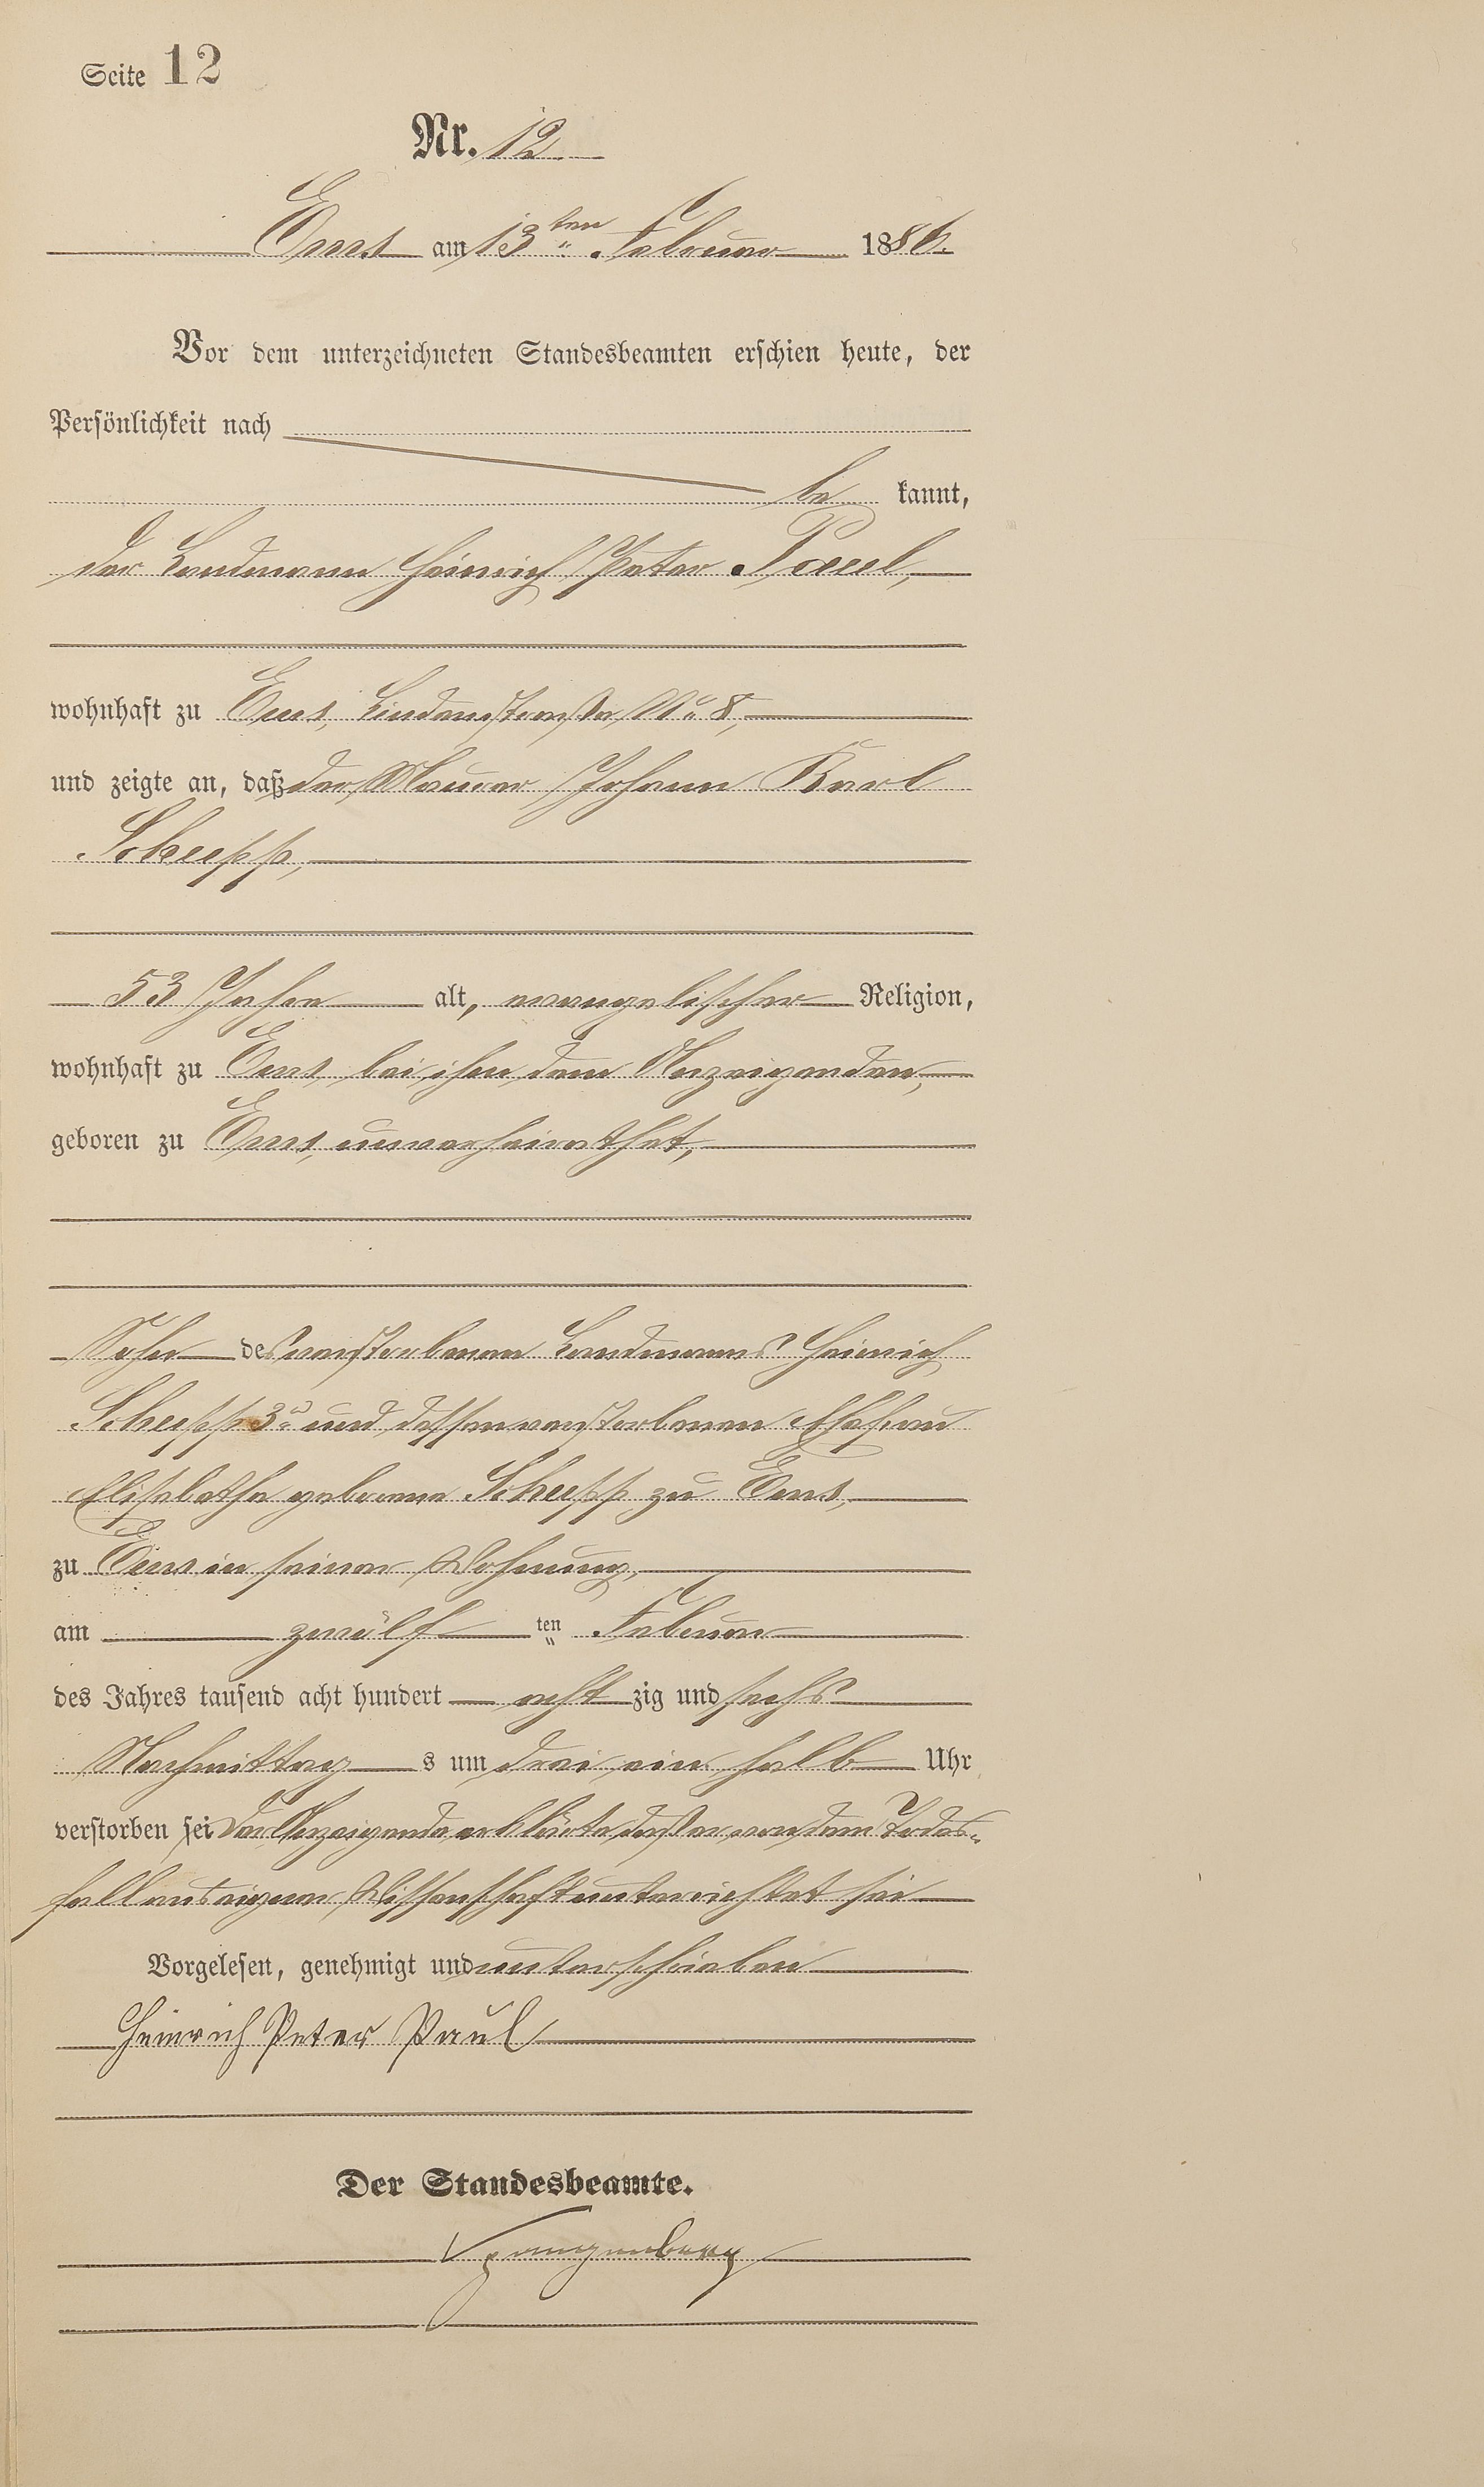 Seite 12
Nr. 12
Ems am 13ten Februar 1886.
Vor dem unterzeichneten Standesbeamten erschien heute, der
Persönlichkeit nach
be kannt,
der Landmann Heinrich Peter Paul,
wohnhaft zu Ems, Lindenstraße No 8,
und zeigte an, daß der Maurer Johann Karl
Schupp,
53 Jahre alt, evangelischer Religion,
wohnhaft zu Ems, bei ihm dem Anzeigenden,
geboren zu Ems, unverheirathet,
Sohn des verstorbenen Landmanns Heinrich
Schupp 3r und dessen verstorbenen Ehefrau
Elisabethe geborene Schupp zu Ems,
zu Ems in seiner Wohnung,
am zwölf ten Februar
des Jahres tausend acht hundert acht zig und sechs
Nachmittag s um drei ein halb Uhr
verstorben sei Der Anzeigende erklärte daß er von dem Todes-
fall aus eigner Wissenschaft unterrichtet sei
Vorgelesen, genehmigt und unterschrieben
Heinrich Peter Paul
Der Standesbeamte.
Spangenberg